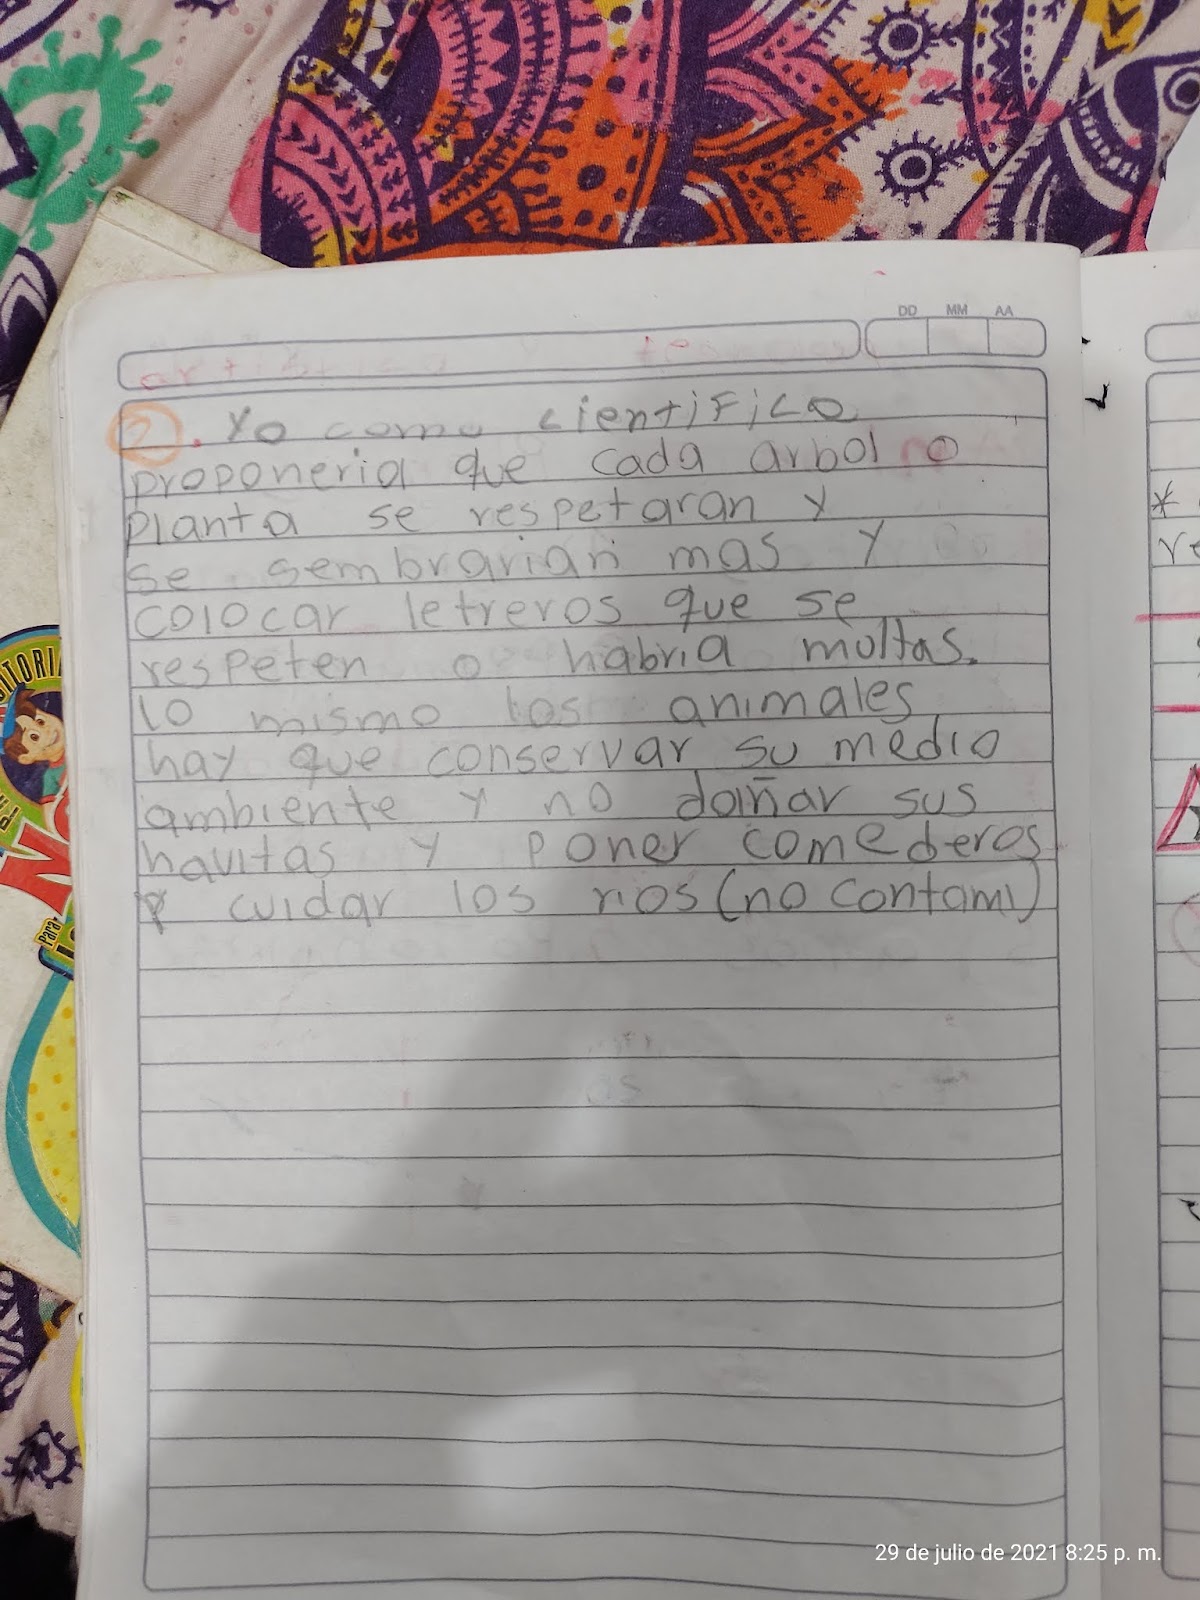 DD MM AA
2. Yo como cientifico
proponeria que cada arbol o
planta se respetaran y
se sembrarian mas y
colocar letreros que se
respeten o habria multas.
lo mismo los animales
hay que conservar su medio
ambiente y no dañar sus
havitas y poner comederos
y cuidar los rios (no contami)
29 de julio de 2021 8:25 p. m.